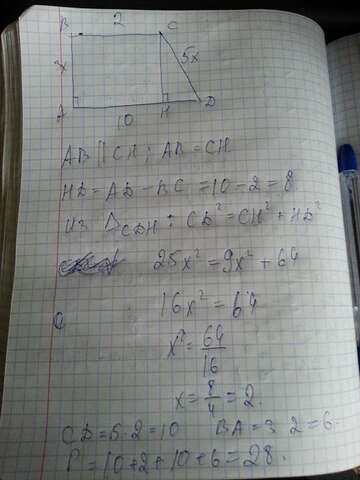 2
B C
3x 5x
A H D
10
AB || CH ; AB = CH
HD = AD - BC = 10 - 2 = 8
Из △CDH : CD² = CH² + HD²
25x² = 9x² + 64
16x² = 64
x² = 64/16
x = 8/4 = 2.
CD = 5·2 = 10 BA = 3·2 = 6
P = 10 + 2 + 10 + 6 = 28.